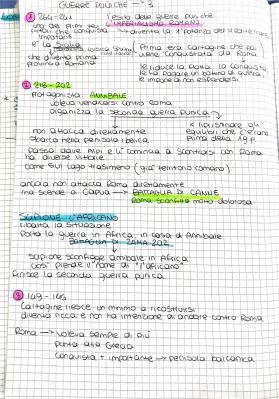 GUERRE PUNICHE → 3
① 264-241
l'esito delle guerre puniche
IMPERIALISMO ROMANO
uno dei primi territori che conquista
diventa la potenza del Mediterraneo
importanti
è la Sicilia
che diventa prima
provincia romana
Prima era Cartagine che poi
viene conquistata da Roma
le riduce la flotta, la conquista
le fa pagare un bottino di guerra
le impone di non espandersi
② 218-202
Protagonista: ANNIBALE
voleva vendicarsi contro Roma
organizza la seconda guerra punica
x ripristinare gli
equilibri che c'erano
prima della 1ª g
non attacca direttamente
sbarca nella penisola iberica
passa dalle Alpi e lì comincia a scontrarsi con Roma
ha diverse vittorie
come sul Lago Trasimeno (già territorio romano)
ancora non attacca Roma direttamente
ma scende a Capua → BATTAGLIA DI CANNE
Roma sconfitta molto dolorosa
SCIPIONE L'AFRICANO
ribalta la situazione
Porta la guerra in Africa, in casa di Annibale
BATTAGLIA DI ZAMA 202
Scipione sconfigge Annibale in Africa
così prende il nome di "l'africano"
finisce la seconda guerra punica
③ 149-146
Cartagine riesce un minimo a ricostruirsi
diventa ricca e non ha intenzione di andare contro Roma
Roma → voleva sempre di più
punta alla Grecia
conquista + importante → penisola balcanica